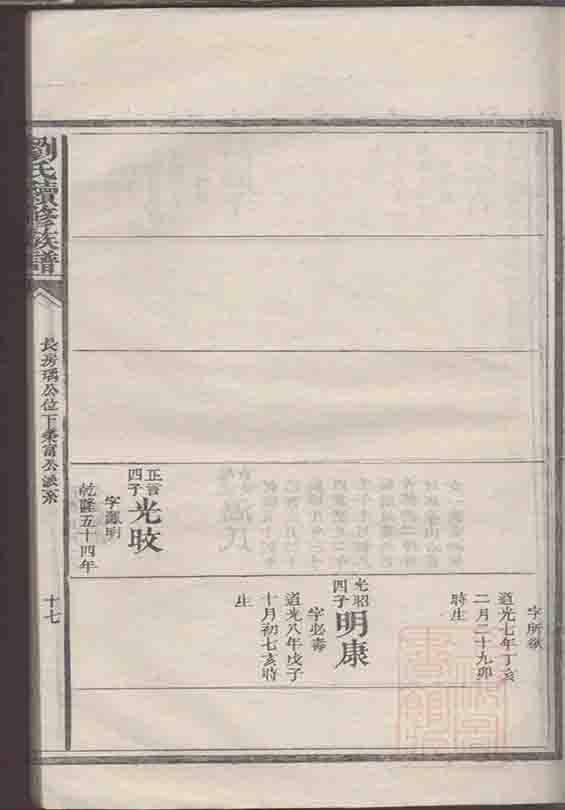 字所欲
道光七年丁亥
二月二十九卯
時生
光昭
四子
明康
字必壽
道光八年戊子
十月初七亥時
生
四子
光旼
乾隆五十四年
劉氏續修族譜
長房瑀公位下榮富公派系
十七